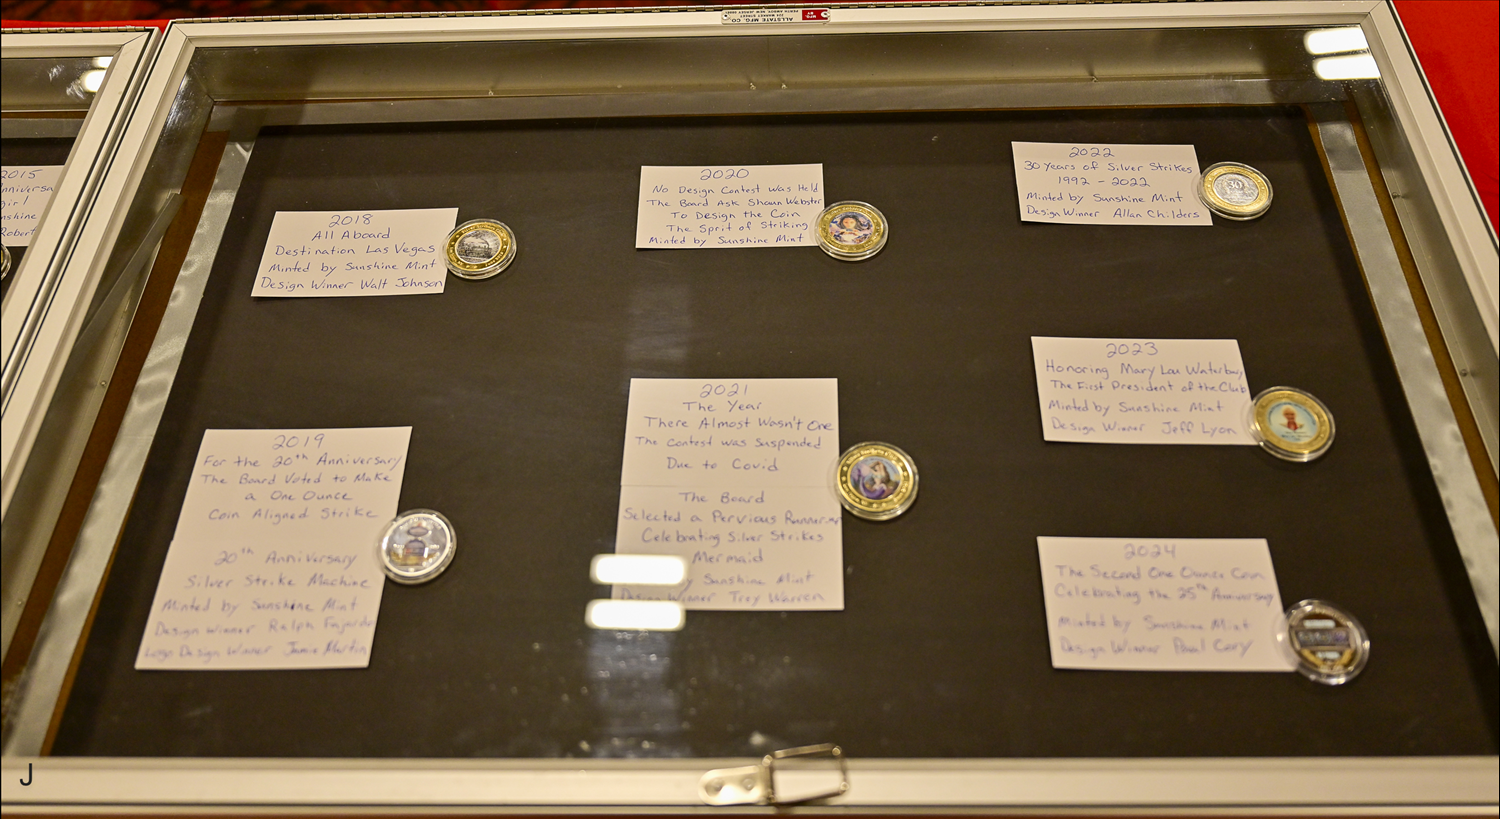 ALLSTATE MFG. CO.
MFG BY
2015
nniversa
girl
nshine
Robert
2018
All Aboard
Destination Las Vegas
Minted by Sunshine Mint
Design Winner Walt Johnson
2019
For the 20th Anniversary
The Board Voted to Make
a One Ounce
Coin Aligned Strike
20th Anniversary
Silver Strike Machine
Minted by Sunshine Mint
Design Winner Ralph Fajardo
Logo Design Winner Jamie Martin
2020
No Design Contest was Held
The Board Ask Shaun Webster
To Design the Coin
The Sprit of Striking
Minted by Sunshine Mint
2021
The Year
There Almost Wasn't One
The Contest was Suspended
Due to Covid
The Board
Selected a Pervious Runner
Celebrating Silver Strikes
Mermaid
by Sunshine Mint
Design Winner Troy Warren
2022
30 Years of Silver Strikes
1992 - 2022
Minted by Sunshine Mint
Design Winner Allan Childers
30
2023
Honoring Mary Lou Waterbury
The First President of the Club
Minted by Sunshine Mint
Design Winner Jeff Lyon
2024
The Second One Ounce Coin
Celebrating the 25th Anniversary
Minted by Sunshine Mint
Design Winner Paul Cory
J